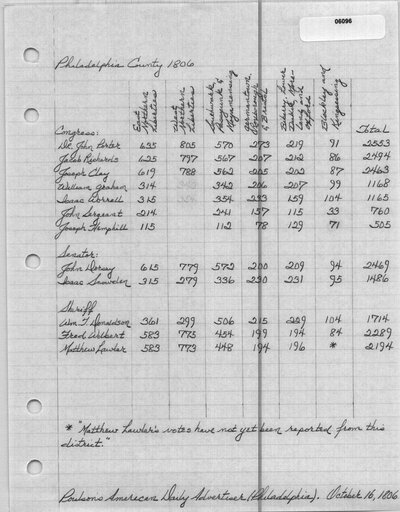 06096
Philadelphia County 1806
East Northern Liberties
West Northern Liberties
Southwark, Passyunk & Moyamensing
Germantown, Roxborough & Bristol
Byberry, Lower Dublin, More-land and Oxford
Blockley and Kingsessing
Congress: Total
Dr. John Porter 635 805 570 213 219 91 2533
Jacob Richards 625 797 567 207 212 86 2494
Joseph Clay 619 788 562 205 202 87 2463
William Graham 314 342 206 207 99 1168
Isaac Worrall 315 354 233 159 104 1165
John Sergeant 214 241 157 115 33 760
Joseph Hemphill 115 112 78 129 71 505
Senator:
John Dorsey 615 779 572 200 209 94 2469
Isaac Snowden 315 279 336 230 231 95 1486
Sheriff
Wm. T. Donaldson 361 299 506 215 229 104 1714
Fred Wolbert 583 775 454 199 194 84 2289
Matthew Lawler 583 773 448 194 196 * 2194
* "Matthew Lawler's votes have not yet been reported from this
district."
Poulson's American Daily Advertiser (Philadelphia). October 16, 1806